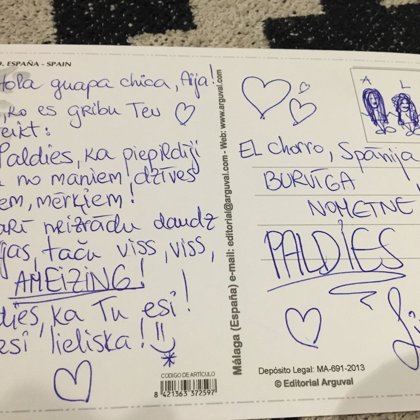 . ESPAÑA - SPAIN
Hola guapa chica, Aija!
, ko es gribu Tev
eikt:
Paldies, ka piepildiji
no maniem dzīves
iem, mērķiem!
arī neizrādu daudz
jas, taču viss, viss,
AMEIZING!
dies, ka Tu esi!
esi lieliska!
CODIGO DE ARTÍCULO
8 421363 372597
Málaga (España) e-mail: editorial@arguval.com - Web: www.arguval.com
A L
EL chorro, Spānija
BURVĪGA
NOMETNE
PALDIES
Depósito Legal: MA-691-2013
© Editorial Arguval